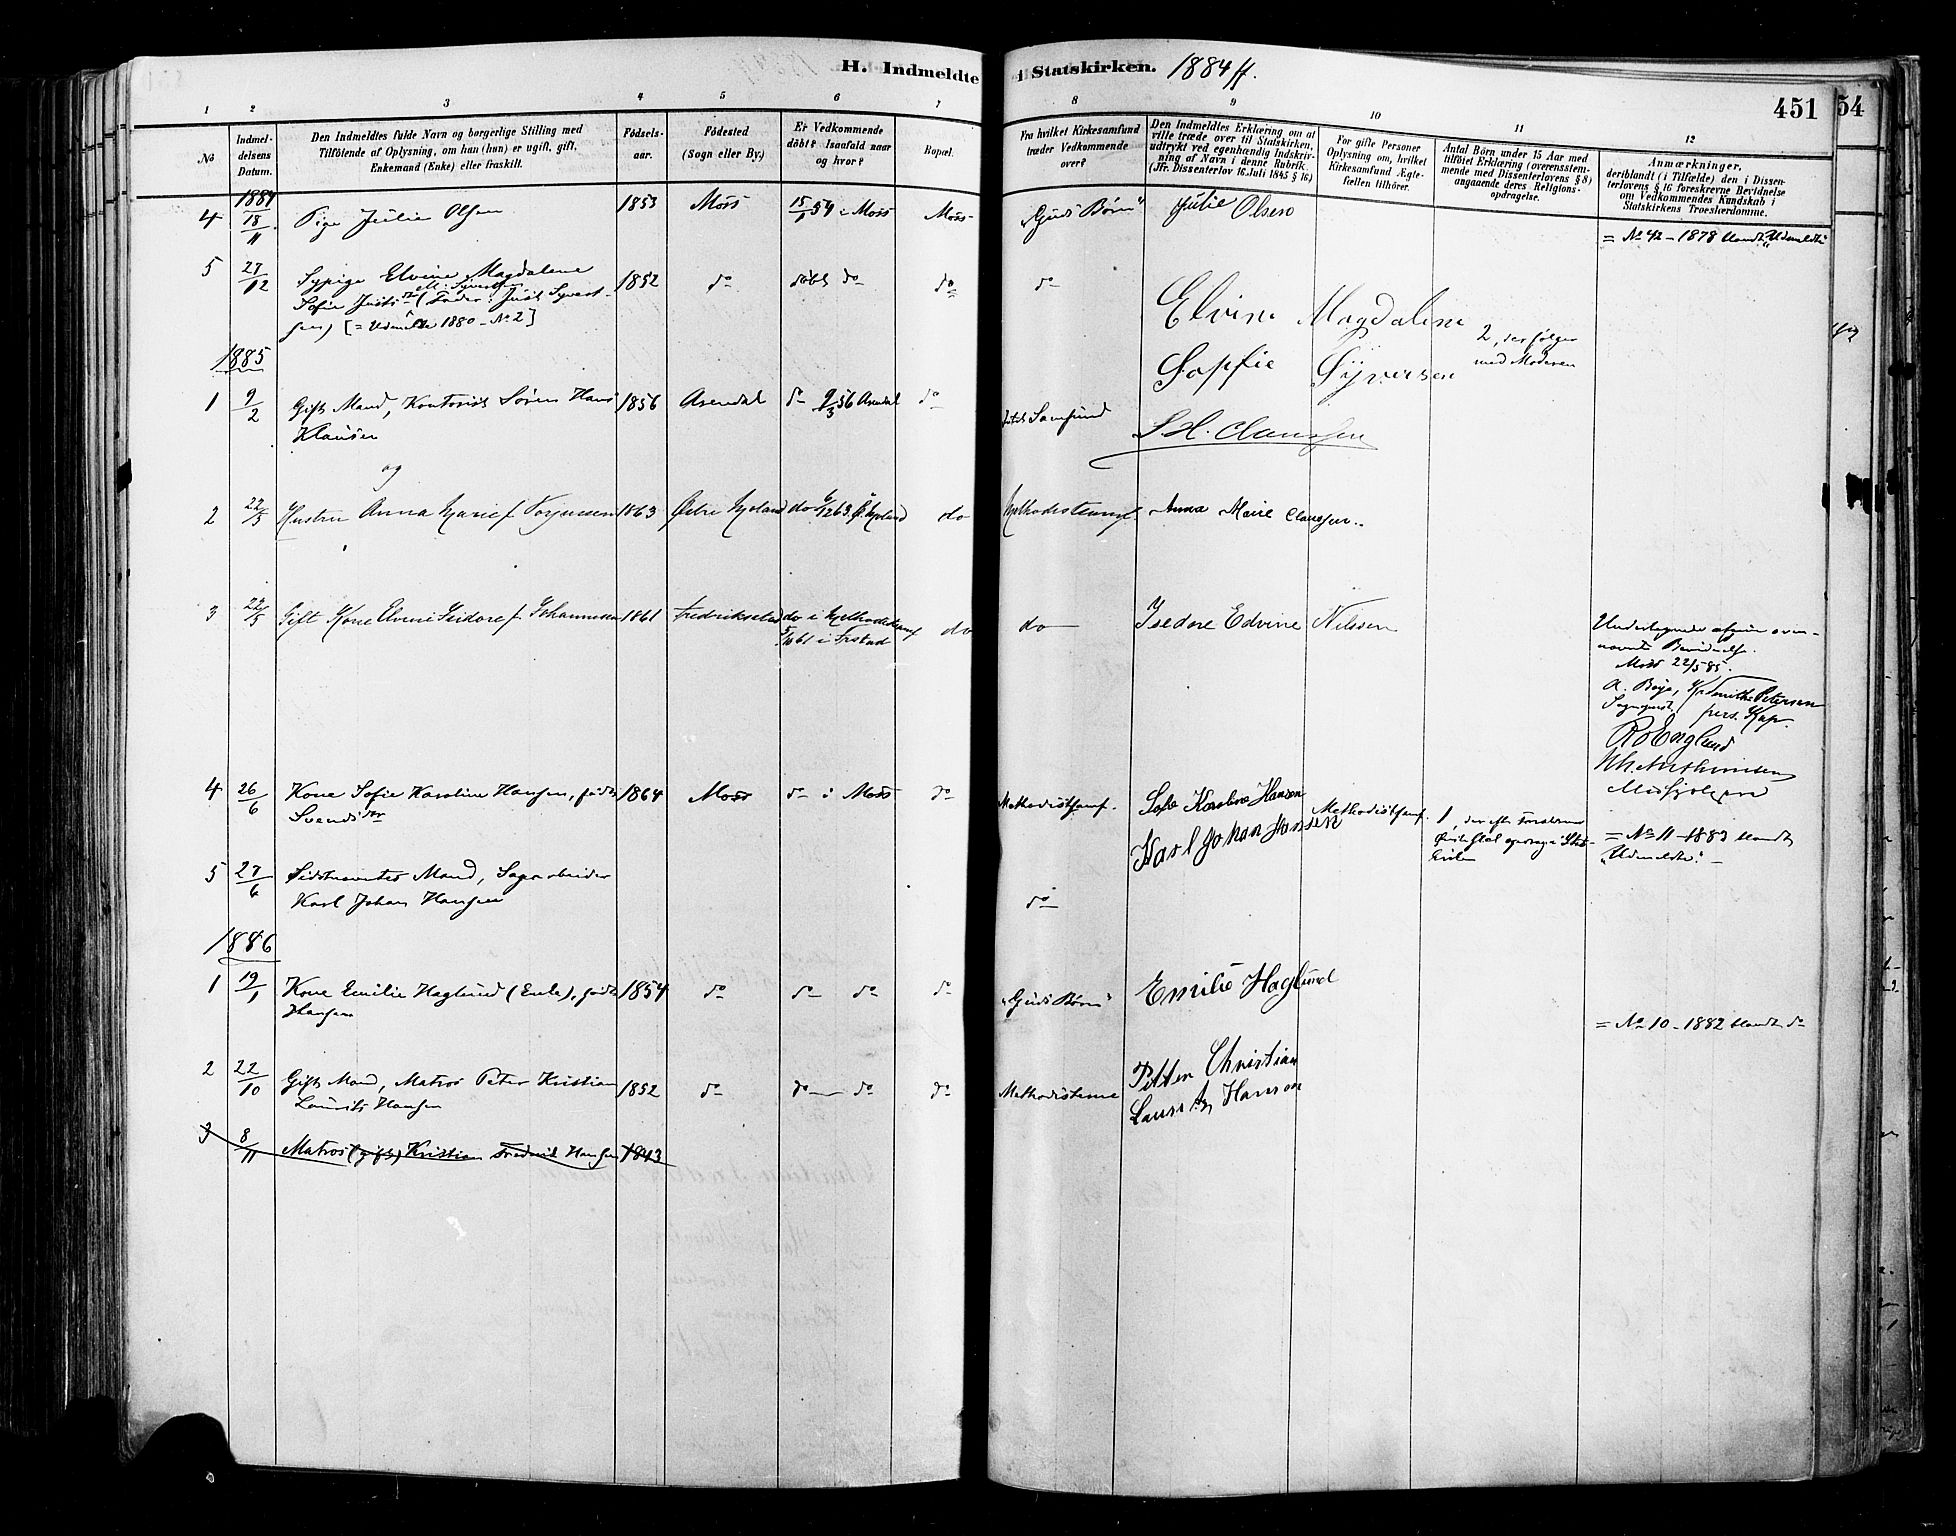 H. Indmeldte i Statskirken. 1884 ff.
451
54
1
2
3
4
5
6
7
8
9
10
11
12
No
Indmel-
delsens
Datum.
Den Indmeldtes fulde Navn og borgerlige Stilling med
Tilföiende af Oplysning, om han (hun) er ugift, gift,
Enkemand (Enke) eller fraskilt.
Födsels-
aar.
Födested
(Sogn eller By.)
Er Vedkommende
döbt? Isaafald naar
og hvor?
Bopæl.
Fra hvilket Kirkesamfund
træder Vedkommende
over?
Den Indmeldtes Erklæring om at
ville træde over til Statskirken,
udtrykt ved egenhændig Indskriv-
ning af Navn i denne Rubrik.
(Jfr. Dissenterlov 16 Juli 1845 § 16.)
For gifte Personer
Oplysning om, hvilket
Kirkesamfund Ægte-
fællen tilhörer.
Antal Börn under 15 Aar med
tilföiet Erklæring (overensstem-
mende med Dissenterlovens § 8)
angaaende deres Religions-
opdragelse.
Anmærkninger,
deriblandt (i Tilfælde) den i Dissen-
terlovens § 16 foreskrevne Bevidnelse
om Vedkommendes Kundskab i
Statskirkens Troeslærdomme.
1884
4 18/11 Pige Julie Olsen 1853 Moss 15/1 54 i Moss Moss "Guds Børn" Julie Olsen
= No 42 - 1878 blandt "Udmeldte"
5 27/12 Sypige Elvine Magdalene
Sofie Justsdr (Fader: Just Syvert-
sen) [= Udmeldte 1880 - No 2]
1852 do döbt do do do
Elvine Magdalene
Sopfie Syversen
2, der følger
med Moderen
1885
1 9/2 Gift Mand, Kontorist Søren Hans
Klausen
1856 Arendal do 9/3 56 Arendal do
Samfund
S H. Claussen
og
2 22/5 Hustru Anna Marie f. 1863 Østre do 6/12 63 do
Methodistsamf. Anna Marie Claussen
3 22/5 Gift Kone Elvine Isidore f. Johannesen 1861 Fredrikstad do i Methodistsamf
61 i Frstad
do do Isedore Edvine Nilssen
Moss 22/5 85.
Sogneprest. pers. Kap.
Petersen
Ro Englund
4 26/6 Kone Sofie Karoline Hansen, født
Svendsdr
1864 Moss do i Moss do Methodistsamf. Sofie Karoline Hansen
Karl Johan Hansen
Methodistsamf.
= No 11 - 1883 blandt
"Udmeldte".
5 27/6 Sidstnævntes Mand, Sagarbeider
Karl Johan Hansen
do
1886
1 19/1 Kone Emilie Haglund (Enke), født
Hansen
1854 do do do do "Guds Børn" Emilie Haglund
= No 10 - 1882 blandt do
2 22/10 Gift Mand, Matros Peter Kristian
Laurits Hansen
1852 do do do do Methodisterne
Petter Christian
Lauritz Hanson
3 8/11 Matros (gift) Kristian Fredrik Hansen 1843